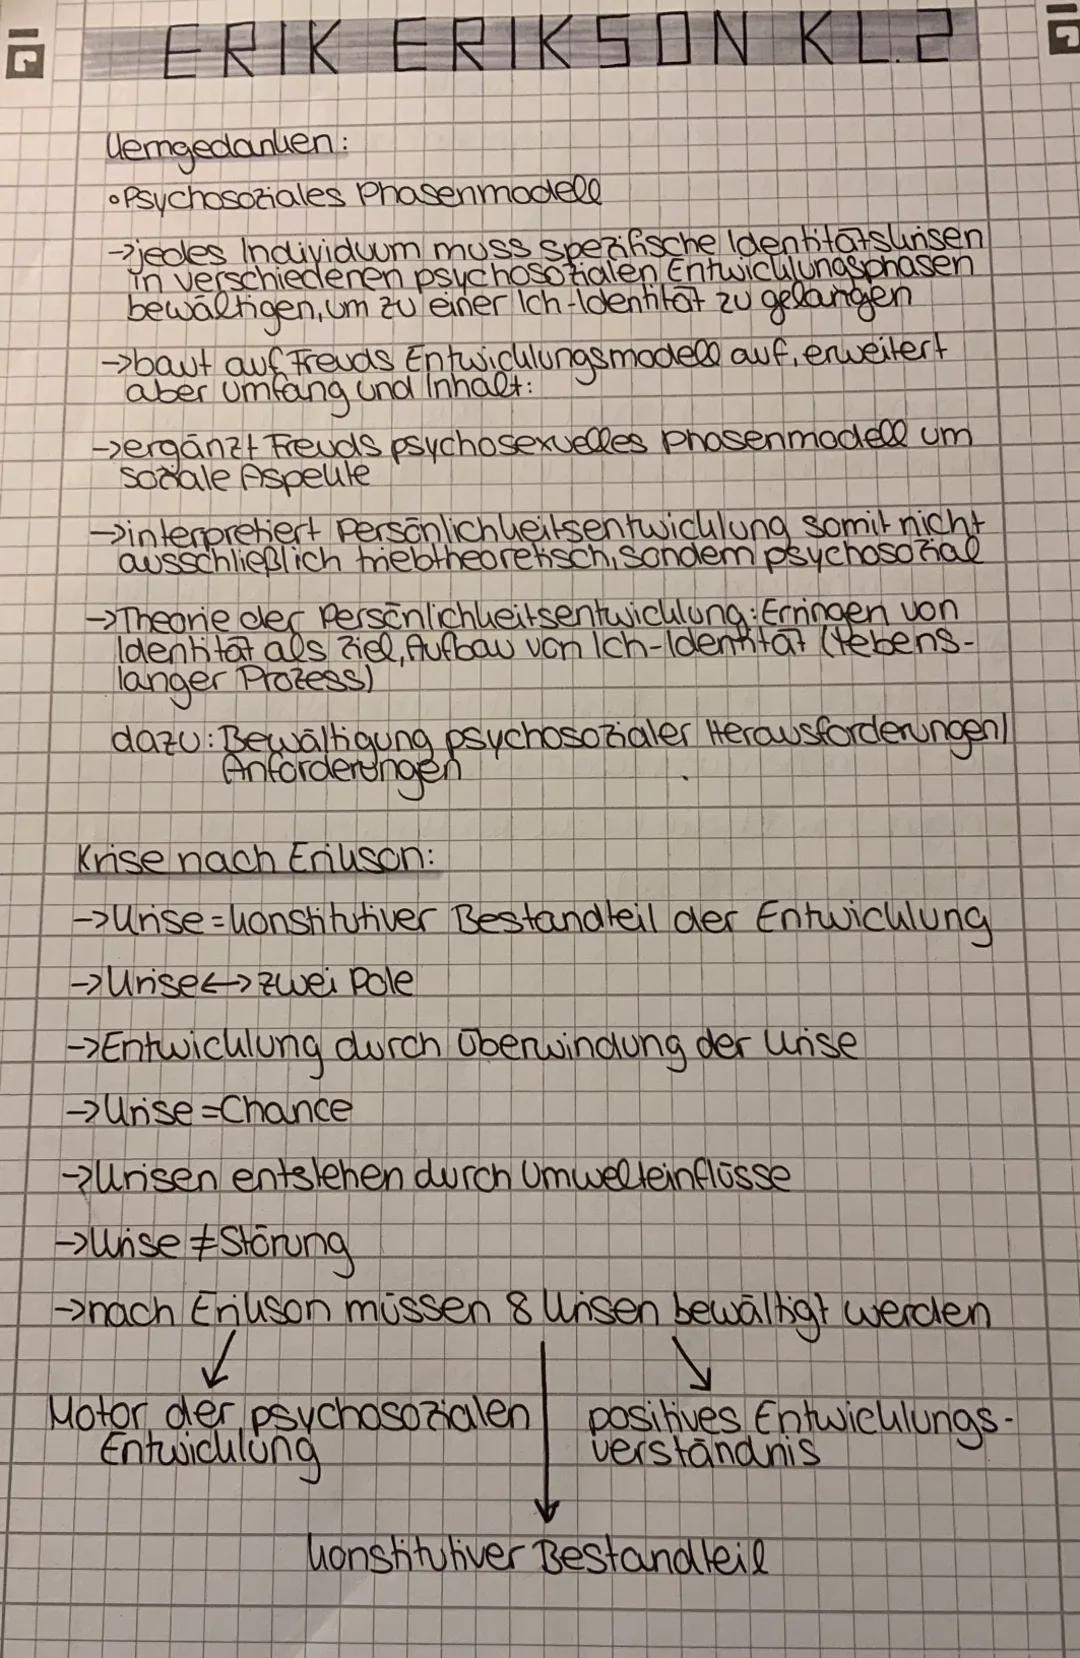 ERIK ERIKSON KL.2
Kerngedanken:
•Psychosoziales Phasenmodell
→jedes Individuum muss spezifische Identitätskrisen
in verschiedenen psychosozialen Entwicklungsphasen
bewältigen, um zu einer Ich-Identität zu gelangen
→baut auf Freuds Entwicklungsmodell auf, erweitert
aber Umfang und Inhalt:
→ergänzt Freuds psychosexuelles Phasenmodell um
soziale Aspekte
→interpretiert Persönlichkeitsentwicklung somit nicht
ausschließlich triebtheoretisch, sondern psychosozial
→Theorie der Persönlichkeitsentwicklung: Erringen von
Identität als Ziel, Aufbau von Ich-Identität (lebens-
langer Prozess)
dazu: Bewältigung psychosozialer Herausforderungen/
Anforderungen
Krise nach Erikson:
→Krise=konstitutiver Bestandteil der Entwicklung
→Krise↔zwei Pole
→Entwicklung durch Überwindung der Krise
→Krise=Chance
→Krisen entstehen durch Umwelteinflüsse
→Krise≠Störung
→nach Erikson müssen 8 Krisen bewältigt werden
Motor der psychosozialen
Entwicklung
positives Entwicklungs-
verständnis
konstitutiver Bestandteil